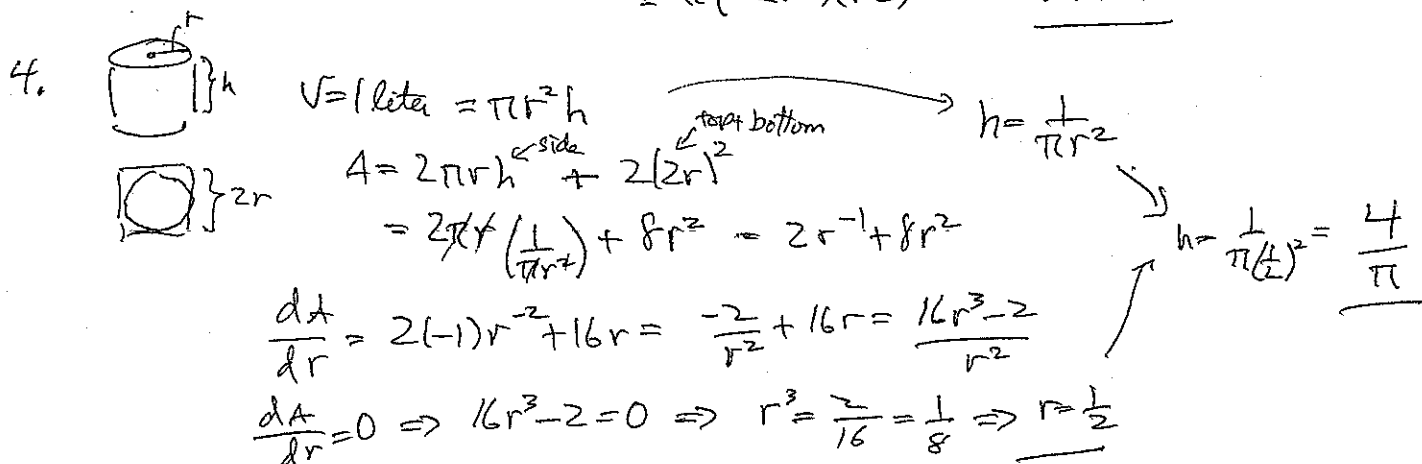 4.
r
}h
V=1 liter = πr²h
h= 1/(πr²)
A= 2πrh ← side + 2(2r)² ← top+ bottom
}2r
= 2πr (1/(πr²)) + 8r² = 2r⁻¹ + 8r²
h= 1/(π(1/2)²) = 4/π
dA/dr = 2(-1)r⁻² + 16r = -2/r² + 16r = (16r³-2)/r²
dA/dr =0 ⇒ 16r³-2=0 ⇒ r³= 2/16 = 1/8 ⇒ r= 1/2